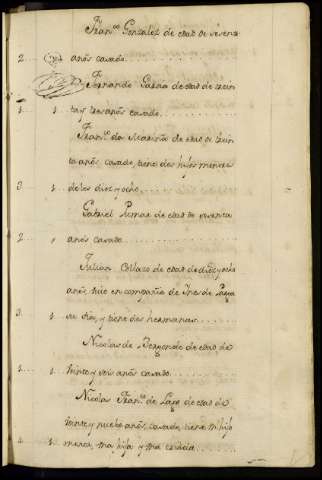 Fran.co Gonzalez de edad de sesenta
2 años casado
Fernando Garcia de edad de trein
1 1 ta y tres años casado
Fran.co da Mariña de edad de trein
ta años casado, tiene dos hijos menores
3 de los diez y ocho
Gabriel Pernas de edad de quarenta
2 años casado
Julian Collazo de edad de diez y seis
años, vive en compañia de Ines de
3 su tia, y tiene dos hermanas
Nicolas de Bergondo de edad de
1 1 veinte y seis años casado
Nicolas Fran.co de Lago de edad de
veinte y nuebe años, casado, tiene un hijo
4 1 menor, una hija y una criada